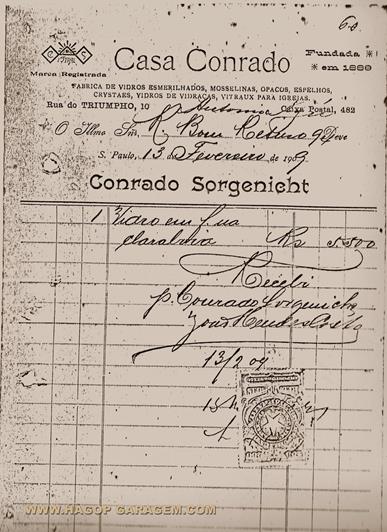 60
Casa Conrado
Marca Registrada
Fundada
em 1889
FABRICA DE VIDROS ESMERILHADOS, MOSSELINAS, OPACOS, ESPELHOS,
CRYSTAES, VIDROS DE VIDRAÇAS, VITRAUX PARA IGREJAS.
Rua do TRIUMPHO, 10 Caixa Postal, 482
O Illmo Snr. R. Bom Retiro 9 Deve
S. Paulo, 13 de Fevereiro de 1909
Conrado Sorgenicht
1 Vidro em sua
claraboia Rs 5.500
Recebi
p. Conrado Sorgenicht
13/2 09
WWW.HAGOP GARAGEM.COM